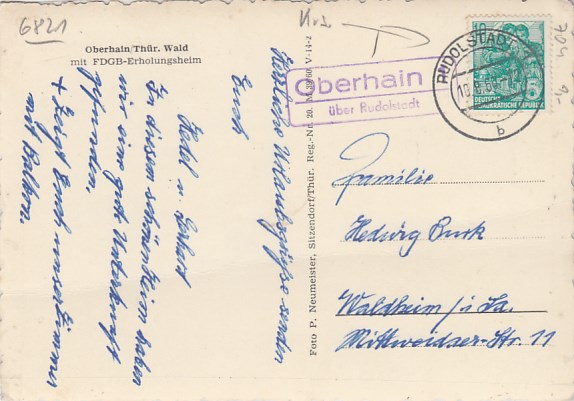 6821
Krs.
704
Oberhain/Thür. Wald
mit FDGB-Erholungsheim
Herzliche Urlaubsgrüße senden
Euch
Hedel u. Gerhard
In diesem schönen Heim haben
wir eine gute Unterkunft
gefunden.
+ zeigt Euch unser Zimmer
mit Balkon.
Foto P. Neumeister, Sitzendorf/Thür. Reg.-Nr. 20. V-14-2
Oberhain
über Rudolstadt
RUDOLSTADT
b
10
5
DEUTSCHE
DEMOKRATISCHE REPUBLIK
Familie
Hedwig Burk
Waldheim / i. Sa.
Mittweidaer-Str. 11